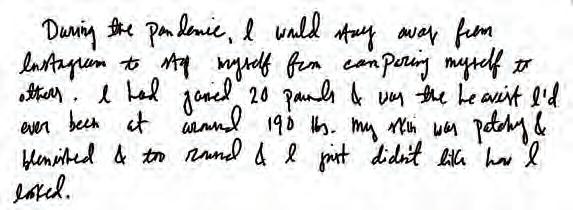 During the pandemic, I would stay away from
Instagram to stop myself from comparing myself to
others. I had gained 20 pounds & was the heaviest I'd
ever been at around 190 lbs. My skin was patchy &
blemished & too round & I just didn't like how I
looked.